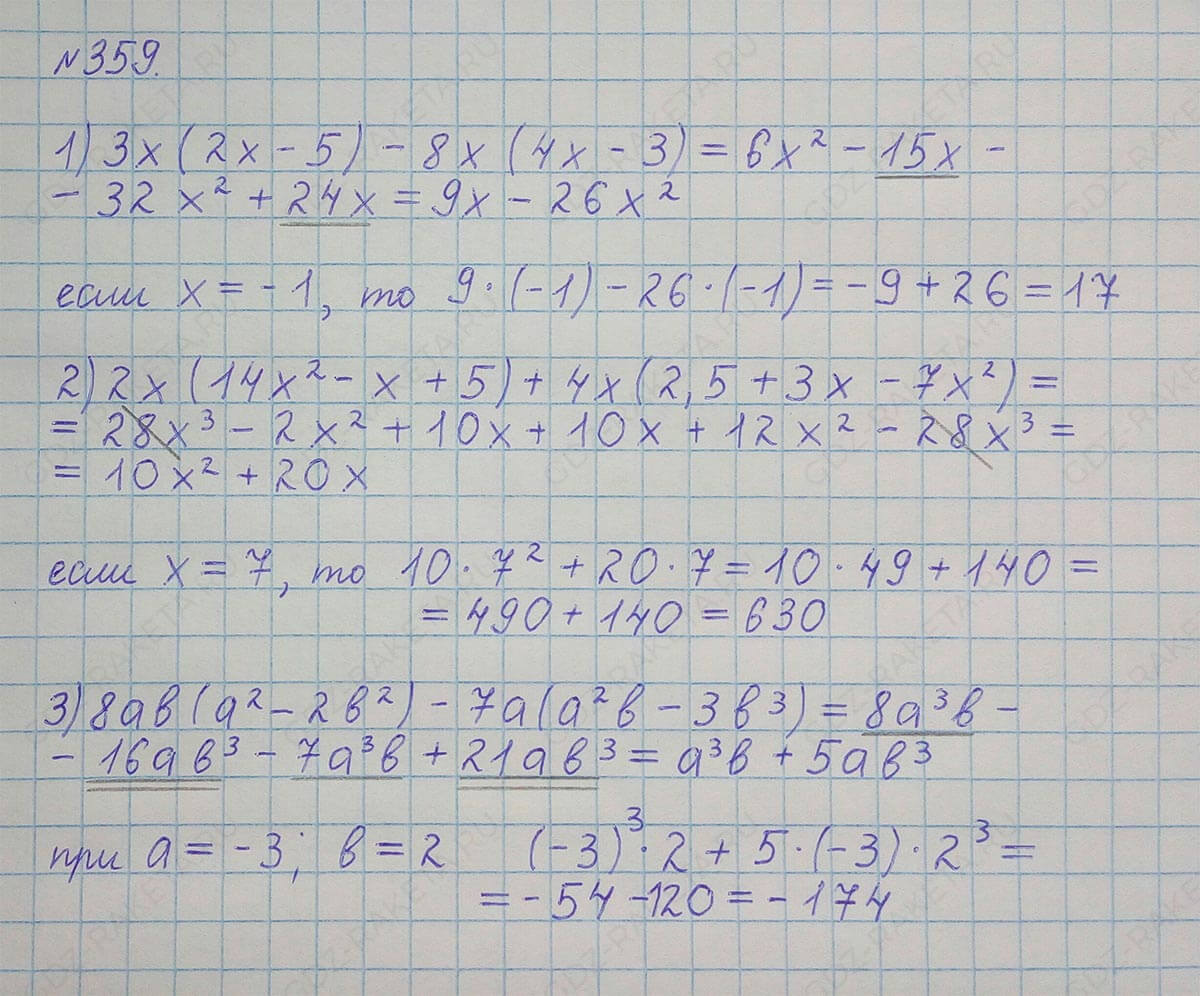 №359.
1) 3x(2x - 5) - 8x(4x - 3) = 6x² - 15x -
- 32x² + 24x = 9x - 26x²
если x = -1, то 9·(-1) - 26·(-1) = -9 + 26 = 17
2) 2x(14x² - x + 5) + 4x(2,5 + 3x - 7x²) =
= 28x³ - 2x² + 10x + 10x + 12x² - 28x³ =
= 10x² + 20x
если x = 7, то 10·7² + 20·7 = 10·49 + 140 =
= 490 + 140 = 630
3) 8ab(a² - 2b²) - 7a(a²b - 3b³) = 8a³b -
- 16ab³ - 7a³b + 21ab³ = a³b + 5ab³
при a = -3; b = 2 (-3)³·2 + 5·(-3)·2³ =
= -54 - 120 = -174
GDZ-RAKETA.RU